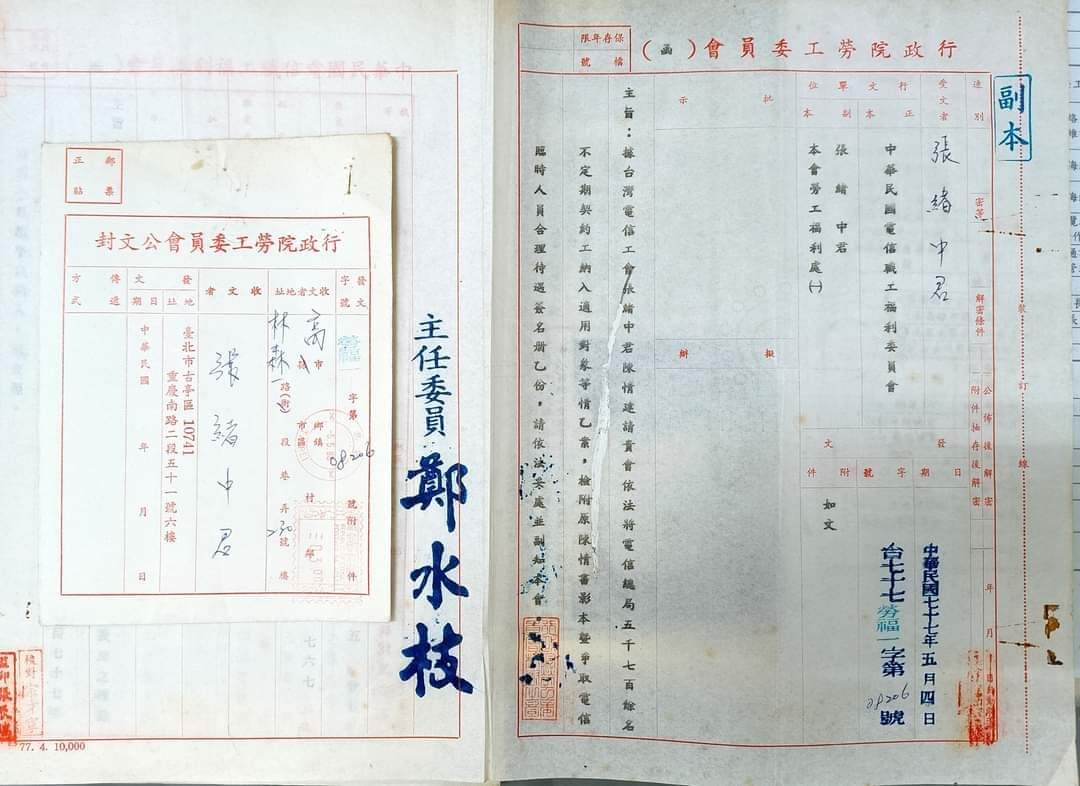 副本
行政院勞工委員會（函）
保存年限
檔號
速別
密等
解密條件
公佈後解密
附件抽存後解密
年月
受文者
張緒中君
行文單位
正本
中華民國電信職工福利委員會
副本
張緒中君
本會勞工福利處㈠
發文
日期
中華民國七十七年五月四日
字號
台七十七勞福一字第08206號
附件
如文
批示
擬辦
主旨：據台灣電信工會張緒中君陳情建請貴會依法將電信總局五千七百餘名
不定期契約工納入適用對象等情乙案，檢附原陳情書影本暨爭取電信
臨時人員合理待遇簽名册乙份，請依法妥處並副知本會。
裝
訂
線
主任委員 鄭水枝
郵票
正貼
行政院勞工委員會公文封
發文字號
勞福一字第08206號附件
收文者地址
高市
林森一路(街)段巷弄230號樓
鄉鎮市區
村
鄰
收文者
張緒中君
發文
地址
臺北市古亭區10741
重慶南路二段五十一號六樓
日期
中華民國 年 月 日
傳遞方式
校對
77. 4. 10,000